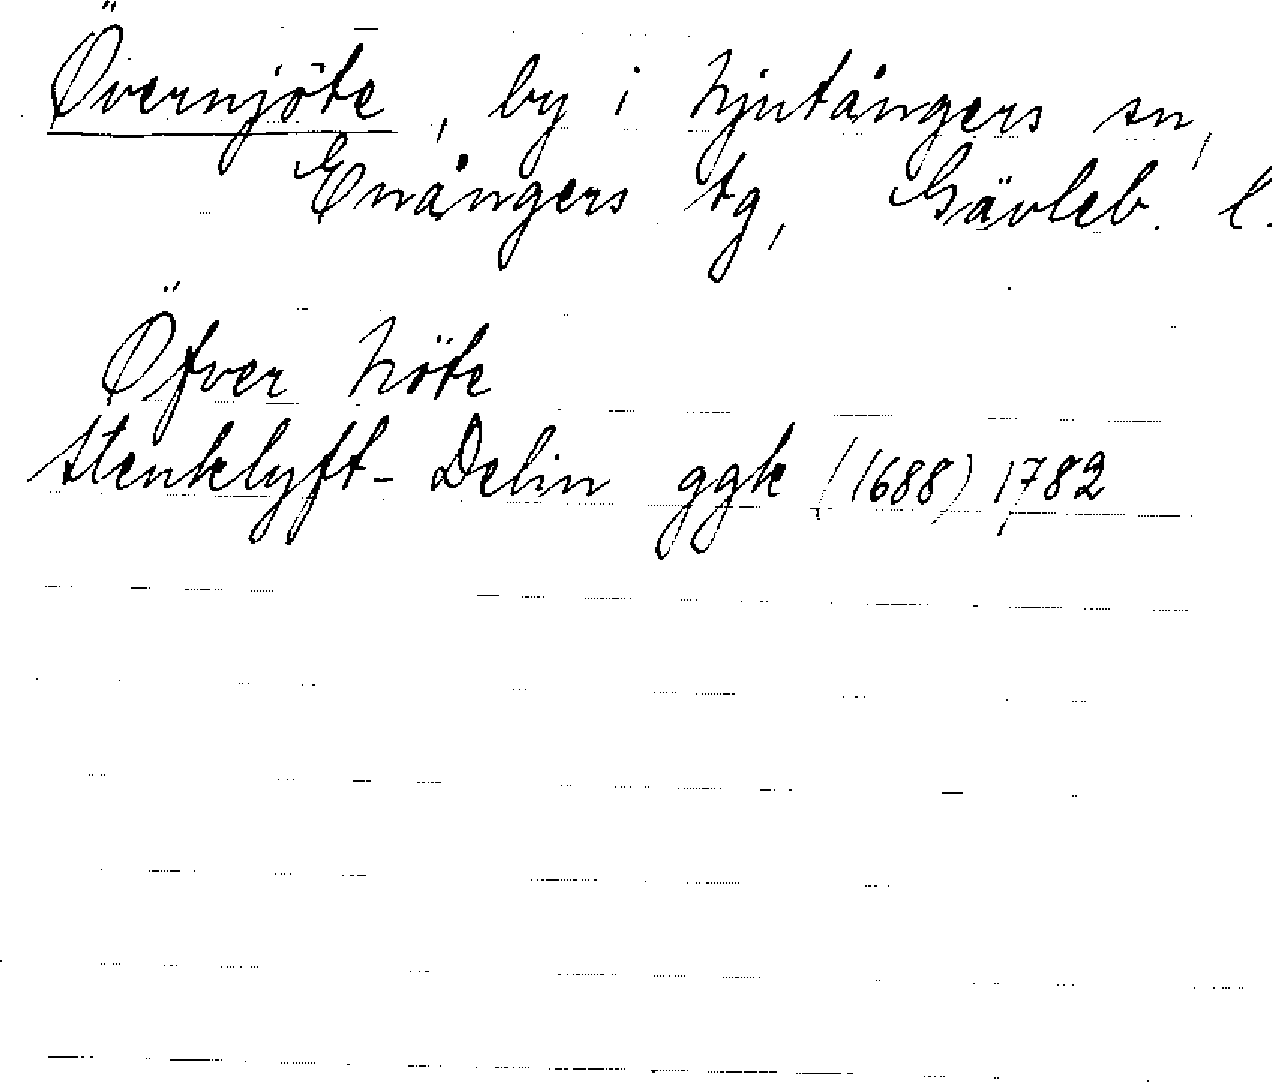 Övernjöte, by i Njutångers sn,
Enångers tg, Gävleb. l.
Öfver Nöte
Stenklyft-Delin ggk (1688) 1782